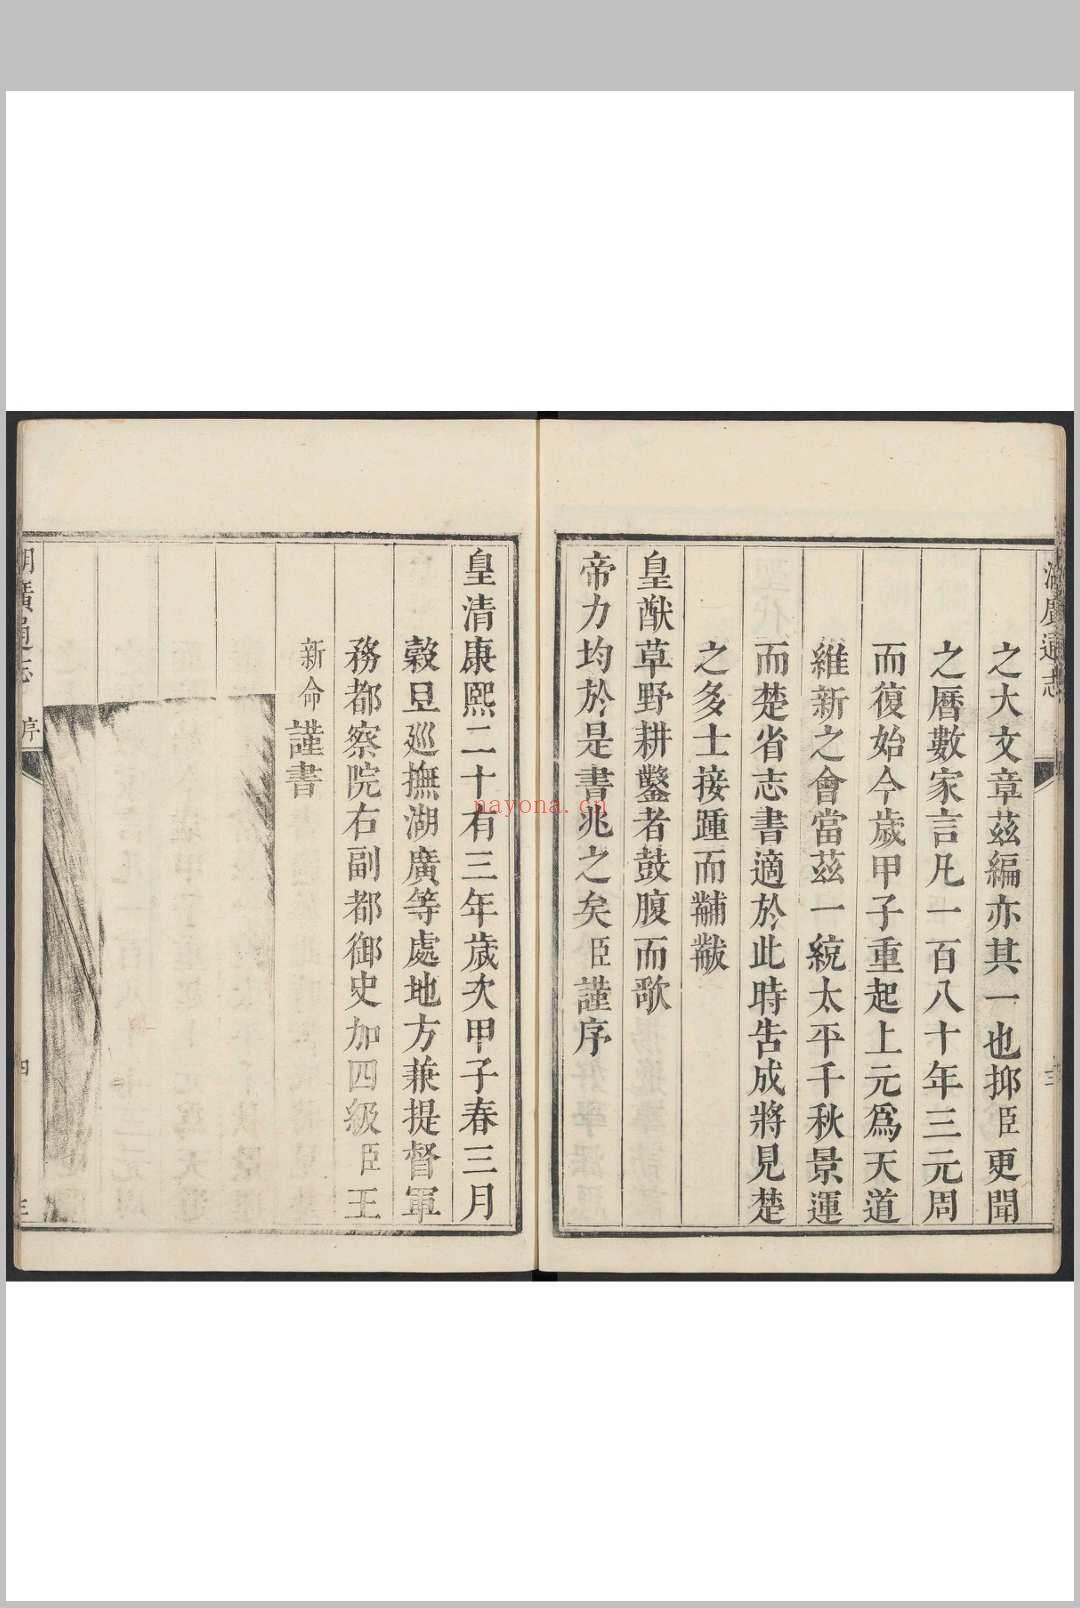 湖廣通志
之大文章茲編亦其一也抑臣更聞
之曆數家言凡一百八十年三元周
而復始今歲甲子重起上元爲天道
維新之會當茲一統太平千秋景運
而楚省志書適於此時告成將見楚
之多士接踵而黼黻
皇猷草野耕鑿者鼓腹而歌
帝力均於是書兆之矣臣謹序
皇清康熙二十有三年歲次甲子春三月
穀旦巡撫湖廣等處地方兼提督軍
務都察院右副都御史加四級臣王
新命謹書
湖廣通志
序
四
nayona.cn